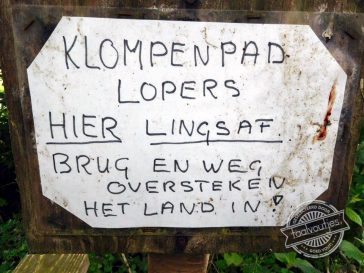 KLOMPENPAD
LOPERS
HIER LINGSAF
BRUG EN WEG
OVERSTEKEN
HET LAND IN!
taalvoutjes